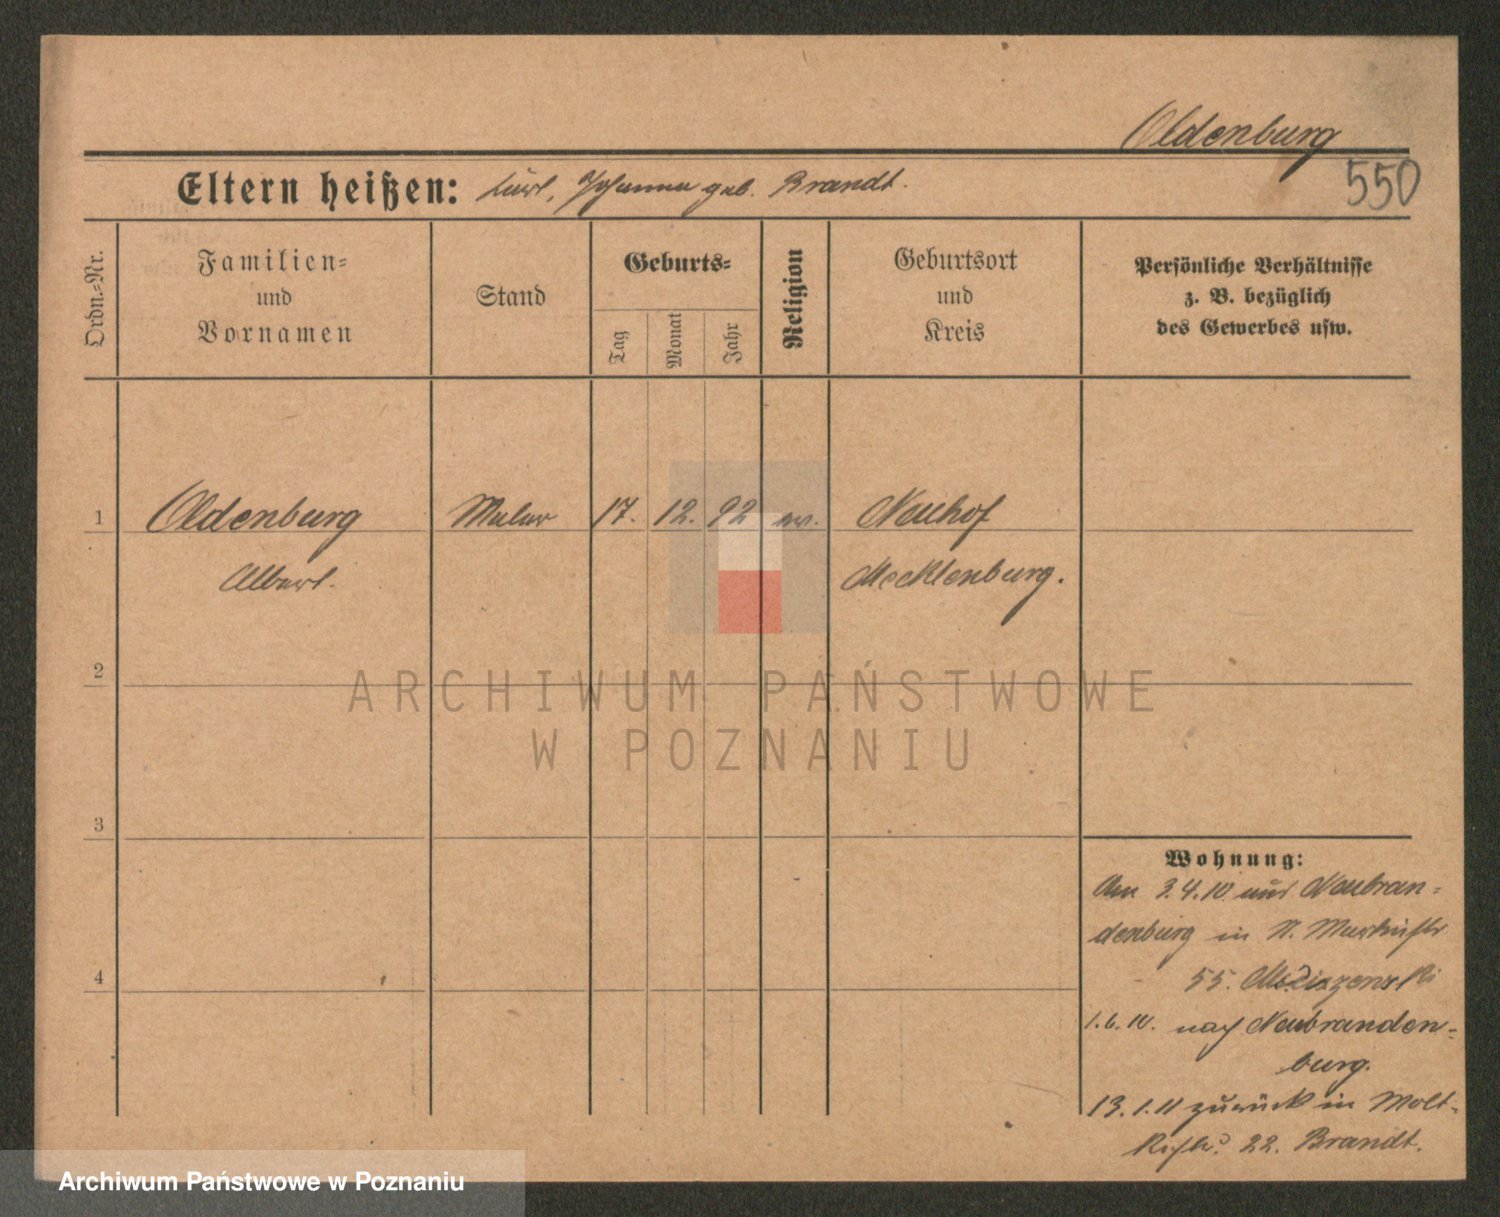 Oldenburg
550
Eltern heißen: Karl, Johanna geb. Brandt.
Ordn.-Nr.
Familien-
und
Vornamen
Stand
Geburts-
Tag
Monat
Jahr
Religion
Geburtsort
und
Kreis
Persönliche Verhältnisse
z. B. bezüglich
des Gewerbes usw.
1 Oldenburg Maler 17. 12. 92 ev. Neuhof
Albert. Mecklenburg.
2
ARCHIWUM PAŃSTWOWE
W POZNANIU
3
Wohnung:
Am 3.4.10 aus Neubran-
denburg in N.
4
55.
1.6.10. nach Neubranden-
burg.
13.1.11 zurück in Molt-
22. Brandt.
Archiwum Państwowe w Poznaniu